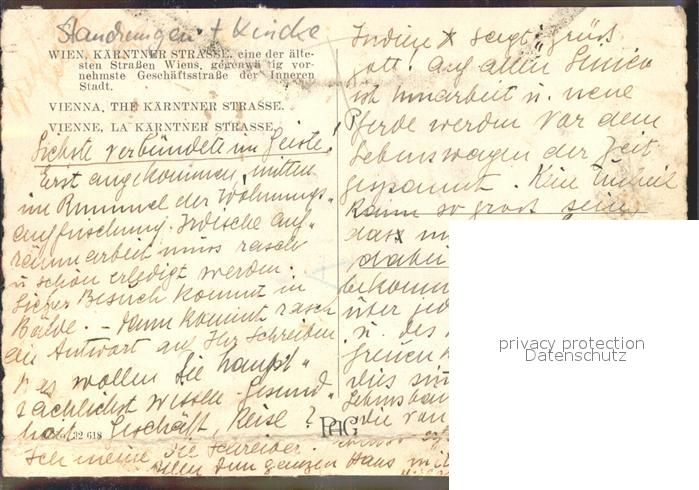 + Kirche
WIEN, KÄRNTNER STRASSE, eine der älte-
sten Straßen Wiens, gegenwä tig vor-
nehmste Geschäftsstraße der Inneren
Stadt.
VIENNA, THE KÄRNTNER STRASSE.
VIENNE, LA KÄRNTNER STRASSE
verbündete im Geiste!
Erst angekommen, mitten
im Rummel der Wohnungs-
auffrischung. Irdische Auf-
räumarbeit muss rasch
u schön erledigt werden.
Besuch kommt in
Bälde. – dann kommt rasch
die Antwort auf Ihr Schreiben
Was wollen Sie haupt-
sächlichst wissen Gesund-
heit, Geschäft, Reise?
32 618
Ich meine die Schreiber.
dem ganzen Haus
PAG
sagt "Grüss
Gott. Auf allen Linien
ist Umarbeit u. neue
Pferde werden vor dem
Lebenswagen der Zeit
gespannt. Kein Unheil
kann so gross sein,
dass
dabei
über
u. des
Lebens
die von
privacy protection
Datenschutz